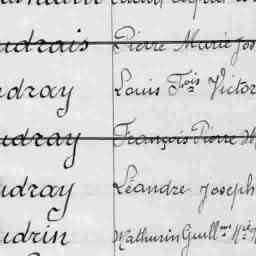 udrais Pierre Marie Jos
udray Louis Fois Victor
udray François Pierre M
udray Léandre Joseph
udrin Mathurin Guill.me